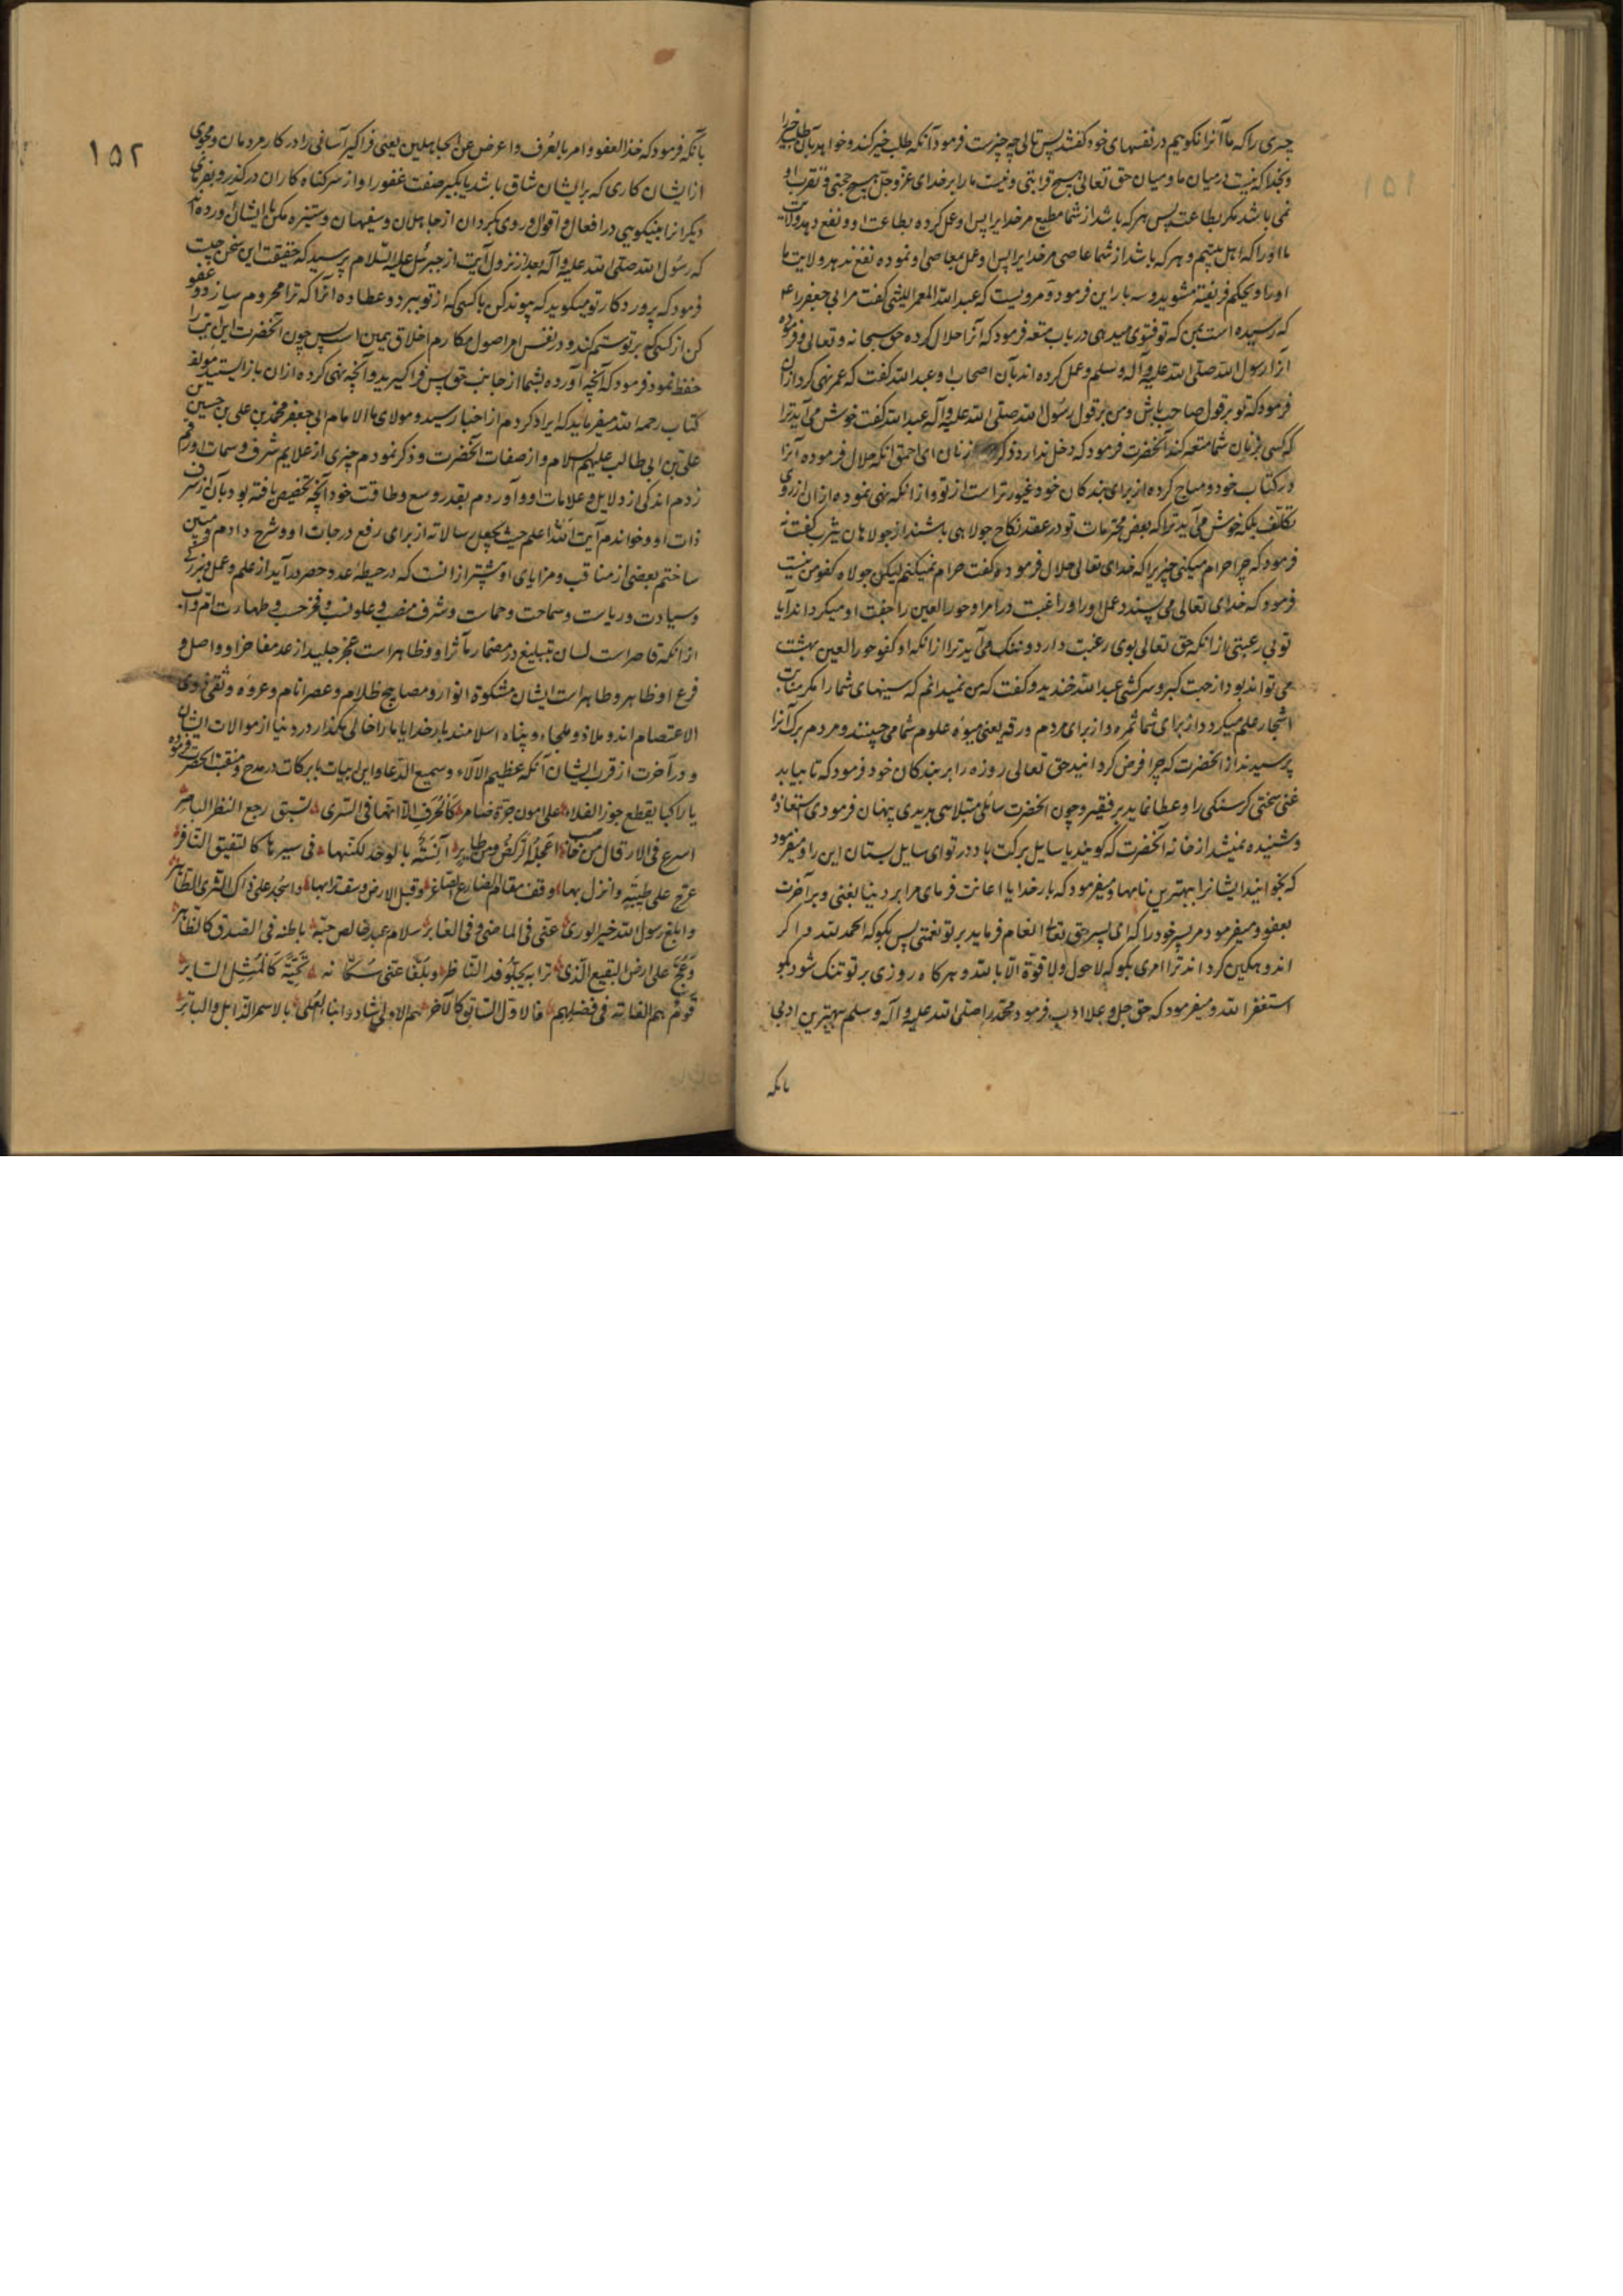 چیزی را که ما آنرا نکوییم در نفسهای خود گفتند پس تالی چه چیزست فرمود آنکه طلب خیر کند و خواهد بآن طلب خیر را
و بخدا که نیست در میان ما و میان حق تعالی هیچ قرابتی و نیست ما را بر خدای عز و جل هیچ حجتی و تقرب او
نمی باشد مگر بطاعت پس هر که باشد از شما مطیع مر خدایرا پس او عمل کرده بطاعت او و نفع دهد ولایت
ما او را که اهل بیتیم و هر که باشد از شما عاصی مر خدایرا پس او عمل بمعاصی او نموده نفع ندهد ولایت ما
او را و یحکم فریفته مشوید و سه بار این فرمود و مرویست که عبد الله المعمر اللیثی گفت مر ابی جعفر را ع
که رسیده است بمن که تو فتوی میدهی در باب متعه فرمود که آنرا حلال کرده حق سبحانه و تعالی و فرموده
آنرا رسول الله صلی الله علیه و آله و سلم و عمل کرده اند بآن اصحاب او عبد الله گفت که عمر نهی کرد ازان
فرمود که تو بر قول صاحب باش و من بر قول رسول الله صلی الله علیه و آله عبد الله گفت خوش می آید ترا
که کسی بزنان شما متعه کند آنحضرت فرمود که دخل ندارد ذکر زنان ای احمق آنکه حلال فرموده آنرا
در کتاب خود و مباح کرده از برای بندگان خود غیورتر است از تو و از آنکه نهی نموده ازان از روی
تکلف بلکه خوش می آید ترا که بعض محرمات تو در عقد نکاح جولاهی باشند از جولاهان یثرب گفت نه
فرمود که چرا حرام میکنی چیزیرا که خدای تعالی حلال فرموده گفت حرام نمیکنم لیکن جولاه کفو من نیست
فرمود که خدای تعالی می پسندد عمل او را و راغبت در امر او و حور العین را جفت او میگرداند آیا
تو بی رغبتی از آنکه حق تعالی بوی رغبت دارد و ننگ می آید ترا از آنکه او کفو حور العین بهشت
می تواند بود از جهت کبر و سرکشی عبد الله خندید و گفت که من نمیدانم که سینهای شما را مگر منابت
اشجار علم میگردد از برای شما ثمره و از برای مردم ورقه یعنی میوه علوم شما می چینند و مردم برگ آنرا
پرسیدند از آنحضرت که چرا فرض گردانید حق تعالی روزه را بر بندگان خود فرمود که تا بیابد
غنی سختی گرسنگی را و عطا نماید بر فقیر و چون آنحضرت سائلی مبتلا می بریدی پنهان فرمودی استعاذه
و شنیده نمیشد از خانه آنحضرت که گویند یا سایل برکت باد در تو ای سایل بستان این را و میفرمود
که بخوانید ایشانرا ببهترین نامها و میفرمود که بار خدایا اعانت فرمای مرا بر دنیا بغنی و بر آخرت
بعفو و میفرمود مر پسر خود را که ای پسر حق تعالی انعام فرماید بر تو نعمتی پس بگو که الحمد لله و اگر
اندوهگین گرداند ترا امری بگو که لا حول و لا قوة الا بالله و هر گاه روزی بر تو تنگ شود بگو
استغفر الله و میفرمود که حق جل و علا ادب فرمود محمد را صلی الله علیه و آله و سلم ببهترین ادبی
بانکه
۱۵۱
۱۵۲
بآنکه فرمود که خذ العفو و امر بالعرف و اعرض عن الجاهلین یعنی فراگیر آسانی را در کار مردمان و مجوی
از ایشان کاری که بر ایشان شاق باشد یا بگیر صفت عفو را و از سر گناه کاران در گذر و بفرمای
دیگرانرا بنیکویی در افعال و اقوال و روی بگردان از جاهلان و سفیهان و ستیزه مکن با ایشان آورده اند
که رسول الله صلی الله علیه و آله بعد از نزول آیت از جبرئیل علیه السلام پرسید که حقیقت این سخن چیست
فرمود که پروردگار تو میگوید که پیوند کن با کسی که از تو ببرد و عطا ده آنرا که ترا محروم سازد و عفو
کن از کسی که بر تو ستم کند و در نفس امر اصول مکارم اخلاق همین است پس چون آنحضرت این آیت را
حفظ نمود فرمود که آنچه آورده بشما از جانب حق پس فراگیرید و آنچه نهی کرده ازان باز ایستید مولف
کتاب رحمه الله میفرماید که ایراد کردم از اخبار سید و مولای ما الامام ابی جعفر محمد بن علی بن حسین بن
علی بن ابی طالب علیهم السلام و از صفات آنحضرت و ذکر نمودم چیزی از علایم شرف و سمات او و رقم
زدم اندکی از دلایل و علامات او و آوردم بقدر وسع و طاقت خود آنچه تخصیص یافته بود بآن از شرف
ذات او و خواندم آیت الله اعلم حیث یجعل رسالاته از برای رفع درجات او و شرح دادم و مبین
ساختم بعضی از مناقب و مزایای او بیشتر ازانست که در حیطه عد و حصر در آید از علم و عمل و بزرگی
و سیادت و ریاست و سماحت و حماست و شرف منصب و علو نسب و فخر حسب و طهارت ام و اب
از آنکه قاصر است لسان تبلیغ در مضمار مآثر او و ظاهر است عجز جلید از عد مفاخر او و اصل و
فرع او ظاهر و طاهر است ایشان مشکوة انوار و مصابیح ظلام و عصر انام و عروه وثقی ذوی
الاعتصام اند و ملاذ و ملجاء و پناه اسلامند بار خدایا ما را خالی مگذار در دنیا از موالات ایشان
و در آخرت از قرب ایشان آنکه عظیم الآلاء و سمیع الدعا و این ابیات با برکات در مدح و منقبت آنحضرت فرموده
یا راکبا یقطع جوز الفلاه علی امون جسرة ضامر کالحرف الا انها فی السری تسبق رجع النظر الباصر
اسرع فی الارقال من خاضب اعجله الرکض و من طایر آنسه بالوخد لکنها فی سیرها کالنقنق النافر
عرج علی طیبة و انزل بها وقف مقام الضارع الصاغر و قبل الارض وسف ترابها و اسجد علی ذاک الثری الطاهر
و ابلغ رسول الله خیر الوری عنی فی الماضی و فی الغابر سلام عبد خالص حبه باطنه فی الصدق کالظاهر
و عج علی ارض البقیع الذی ترابه یجلو قذی الناظر و بلغا عنی سکانه تحیة کالمثل السایر
قوم هم الغایة فی فضلهم فالاول السابق کالآخر هم الاولی شادوا بناء العلی بالاسمر الذابل و الباتر